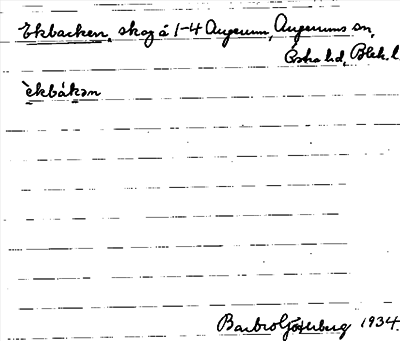 Ekbacken, skog å 1-4 Augerum, Augerums sn,
Östra hd, Blek. l.
èkbákən
Barbro Götlburg 1934.